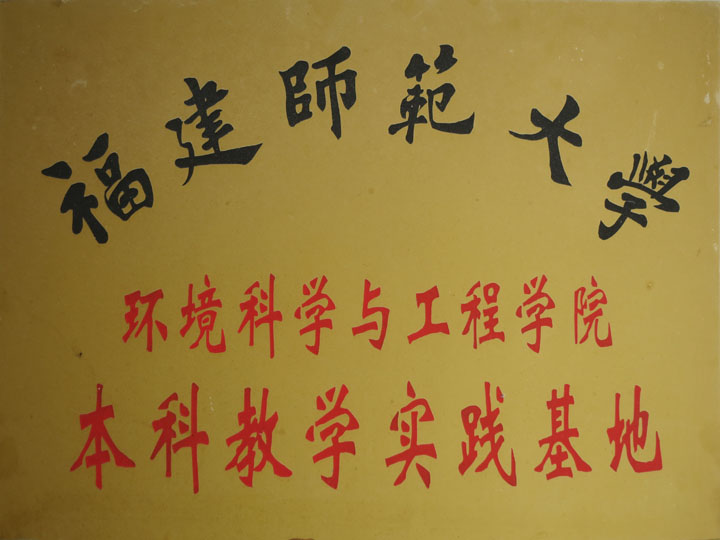 福建師範大學
环境科学与工程学院
本科教学实践基地